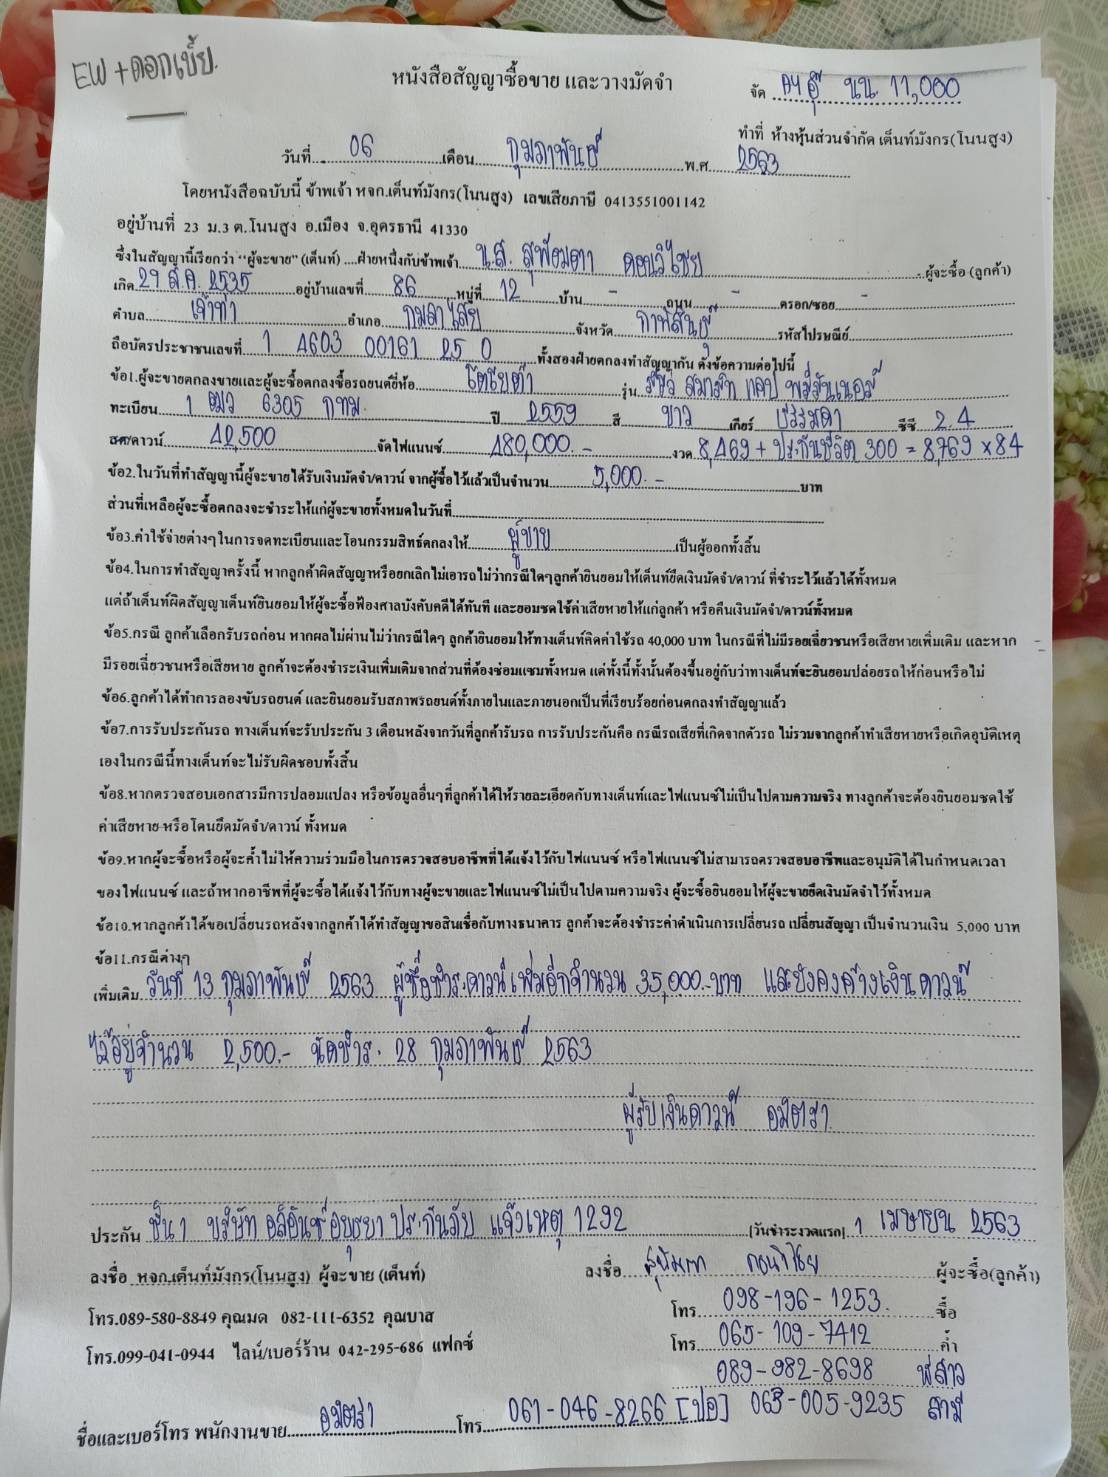 EW + ดอกเบี้ย.
หนังสือสัญญาซื้อขาย และวางมัดจำ
จัด AY อุ๊ นน. 11,000
ทำที่ ห้างหุ้นส่วนจำกัด เต็นท์มังกร(โนนสูง)
วันที่ 06 เดือน กุมภาพันธ์ พ.ศ. 2563
โดยหนังสือฉบับนี้ ข้าพเจ้า หจก.เต็นท์มังกร(โนนสูง) เลขเสียภาษี 0413551001142
อยู่บ้านที่ 23 ม.3 ต.โนนสูง อ.เมือง จ.อุดรธานี 41330
ซึ่งในสัญญานี้เรียกว่า “ผู้จะขาย” (เต็นท์) ....ฝ่ายหนึ่งกับข้าพเจ้า น.ส. ดอนวิไชย ผู้จะซื้อ (ลูกค้า)
เกิด 29 ส.ค. 2535 อยู่บ้านเลขที่ 86 หมู่ที่ 12 บ้าน - ถนน - ตรอก/ซอย -
ตำบล เจ้าท่า อำเภอ กมลาไสย จังหวัด กาฬสินธุ์ รหัสไปรษณีย์
ถือบัตรประชาชนเลขที่ 1 4603 00161 25 0 ทั้งสองฝ่ายตกลงทำสัญญากัน ดังข้อความต่อไปนี้
ข้อ1.ผู้จะขายตกลงขายและผู้จะซื้อตกลงซื้อรถยนต์ยี่ห้อ โตโยต้า รุ่น รีโว่ สมาร์ท แคป พรีรันเนอร์
ทะเบียน 1 ฒว 6305 กทม. ปี 2559 สี ขาว เกียร์ ธรรมดา ซีซี 2.4
สด/ดาวน์ 42,500 จัดไฟแนนซ์ 480,000.- งวด 8,469 + ประกันชีวิต 300 = 8,769 x 84
ข้อ2.ในวันที่ทำสัญญานี้ผู้จะขายได้รับเงินมัดจำ/ดาวน์ จากผู้ซื้อไว้แล้วเป็นจำนวน 5,000.- บาท
ส่วนที่เหลือผู้จะซื้อตกลงจะชำระให้แก่ผู้จะขายทั้งหมดในวันที่
ข้อ3.ค่าใช้จ่ายต่างๆในการจดทะเบียนและโอนกรรมสิทธ์ตกลงให้ ผู้ขาย เป็นผู้ออกทั้งสิ้น
ข้อ4.ในการทำสัญญาครั้งนี้ หากลูกค้าผิดสัญญาหรือยกเลิกไม่เอารถไม่ว่ากรณีใดๆลูกค้ายินยอมให้เต็นท์ยึดเงินมัดจำ/ดาวน์ ที่ชำระไว้แล้วได้ทั้งหมด
แต่ถ้าเต็นท์ผิดสัญญาเต็นท์ยินยอมให้ผู้จะซื้อฟ้องศาลบังคับคดีได้ทันที และยอมชดใช้ค่าเสียหายให้แก่ลูกค้า หรือคืนเงินมัดจำ/ดาวน์ทั้งหมด
ข้อ5.กรณี ลูกค้าเลือกรับรถก่อน หากผลไม่ผ่านไม่ว่ากรณีใดๆ ลูกค้ายินยอมให้ทางเต็นท์คิดค่าใช้รถ 40,000 บาท ในกรณีที่ไม่มีรอยเฉี่ยวชนหรือเสียหายเพิ่มเติม และหาก
มีรอยเฉี่ยวชนหรือเสียหาย ลูกค้าจะต้องชำระเงินเพิ่มเติมจากส่วนที่ต้องซ่อมแซมทั้งหมด แต่ทั้งนี้ทั้งนั้นต้องขึ้นอยู่กับว่าทางเต็นท์จะยินยอมปล่อยรถให้ก่อนหรือไม่
ข้อ6.ลูกค้าได้ทำการลองขับรถยนต์ และยินยอมรับสภาพรถยนต์ทั้งภายในและภายนอกเป็นที่เรียบร้อยก่อนตกลงทำสัญญาแล้ว
ข้อ7.การรับประกันรถ ทางเต็นท์จะรับประกัน 3 เดือนหลังจากวันที่ลูกค้ารับรถ การรับประกันคือ กรณีรถเสียที่เกิดจากตัวรถ ไม่รวมจากลูกค้าทำเสียหายหรือเกิดอุบัติเหตุ
เองในกรณีนี้ทางเต็นท์จะไม่รับผิดชอบทั้งสิ้น
ข้อ8.หากตรวจสอบเอกสารมีการปลอมแปลง หรือข้อมูลอื่นๆที่ลูกค้าได้ให้รายละเอียดกับทางเต็นท์และไฟแนนซ์ไม่เป็นไปตามความจริง ทางลูกค้าจะต้องยินยอมชดใช้
ค่าเสียหาย หรือโดนยึดมัดจำ/ดาวน์ ทั้งหมด
ข้อ9.หากผู้จะซื้อหรือผู้จะค้ำไม่ให้ความร่วมมือในการตรวจสอบอาชีพที่ได้แจ้งไว้กับไฟแนนซ์ หรือไฟแนนซ์ไม่สามารถตรวจสอบอาชีพและอนุมัติได้ในกำหนดเวลา
ของไฟแนนซ์ และถ้าหากอาชีพที่ผู้จะซื้อได้แจ้งไว้กับทางผู้จะขายและไฟแนนซ์ไม่เป็นไปตามความจริง ผู้จะซื้อยินยอมให้ผู้จะขายยึดเงินมัดจำไว้ทั้งหมด
ข้อ10.หากลูกค้าได้ขอเปลี่ยนรถหลังจากลูกค้าได้ทำสัญญาขอสินเชื่อกับทางธนาคาร ลูกค้าจะต้องชำระค่าดำเนินการเปลี่ยนรถ เปลี่ยนสัญญา เป็นจำนวนเงิน 5,000 บาท
ข้อ11.กรณีต่างๆ
เพิ่มเติม วันที่ 13 กุมภาพันธ์ 2563 ผู้ซื้อชำระดาวน์เพิ่มอีกจำนวน 35,000.-บาท และยังคงค้างเงินดาวน์
ไว้อยู่จำนวน 2,500.- นัดชำระ 28 กุมภาพันธ์ 2563
ผู้รับเงินดาวน์ อมิตรา
ประกัน ชั้น 1 บริษัท อลิอันซ์อยุธยา ประกันภัย แจ้งเหตุ 1292 [วันชำระงวดแรก] 1 เมษายน 2563
ลงชื่อ หจก.เต็นท์มังกร(โนนสูง) ผู้จะขาย (เต็นท์) ลงชื่อ ดอนวิไชย ผู้จะซื้อ(ลูกค้า)
โทร.089-580-8849 คุณมด 082-111-6352 คุณบาส โทร 098-196-1253 ซื้อ
โทร.099-041-0944 ไลน์/เบอร์ร้าน 042-295-686 แฟกซ์ โทร 065-109-7412 ค้ำ
089-982-8698 พี่สาว
ชื่อและเบอร์โทร พนักงานขาย อมิตรา โทร 061-046-8266 [ปอ] 063-005-9235 สามี